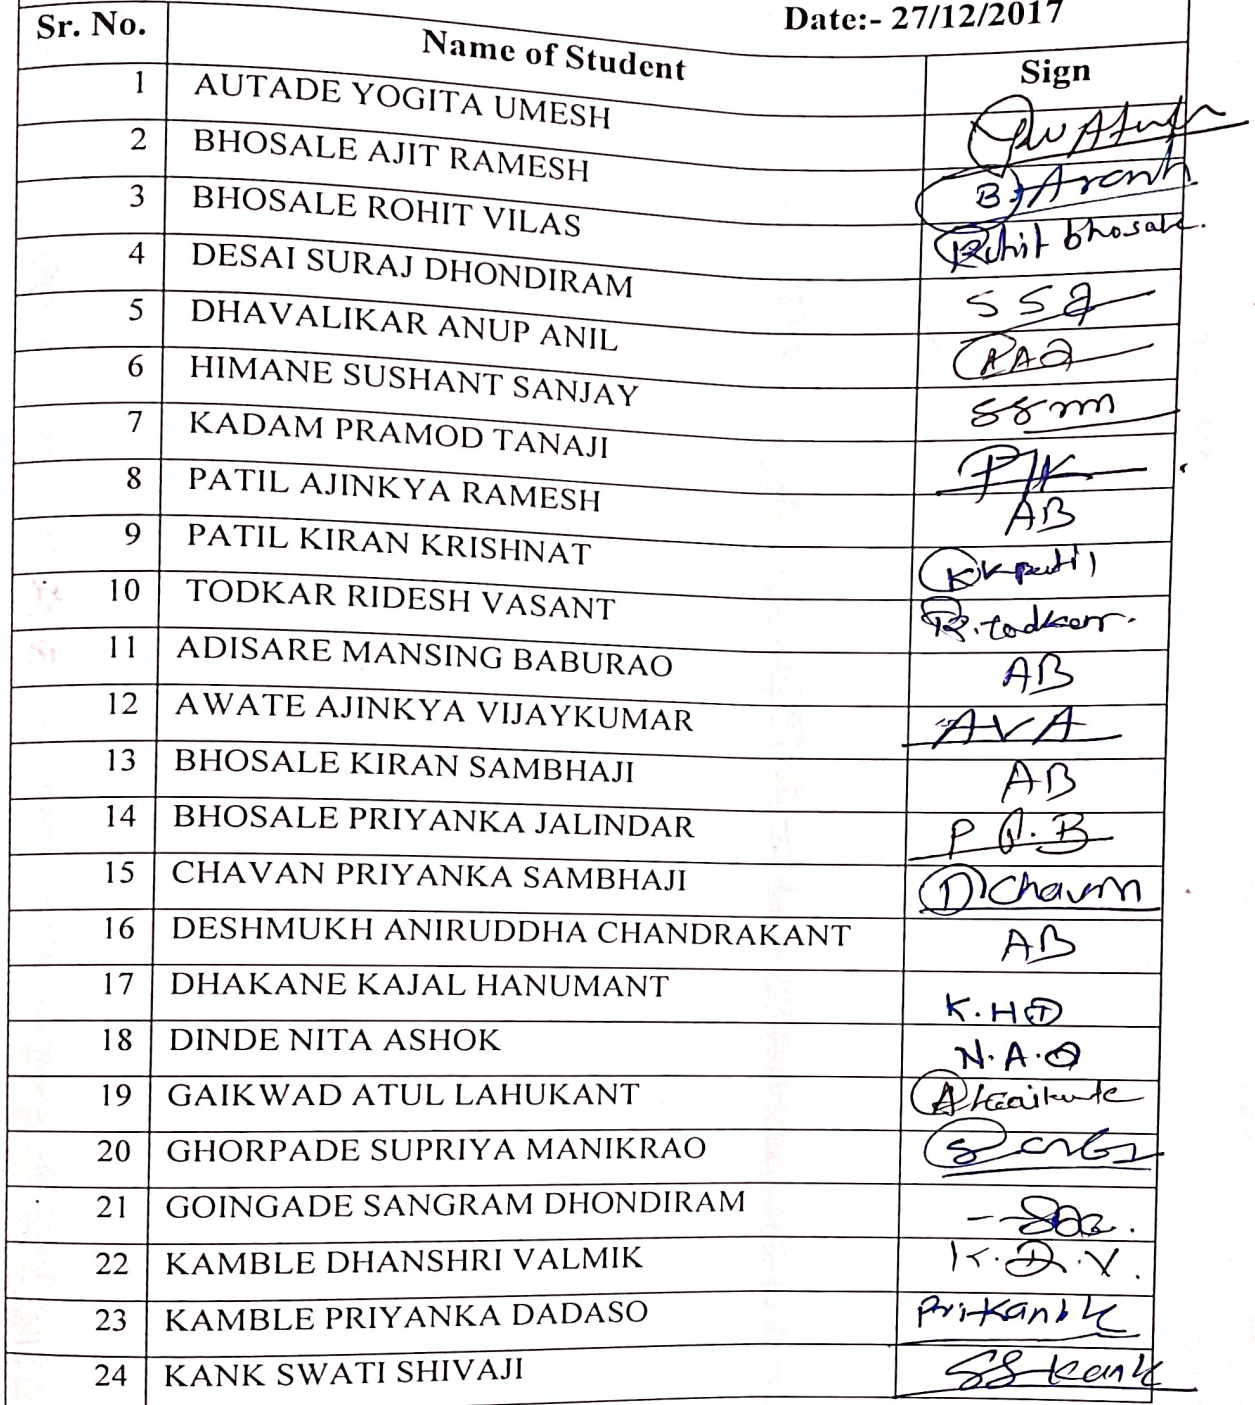 Date:- 27/12/2017
Sr. No. Name of Student Sign
1 AUTADE YOGITA UMESH
2 BHOSALE AJIT RAMESH
3 BHOSALE ROHIT VILAS Rohit bhosale.
4 DESAI SURAJ DHONDIRAM
5 DHAVALIKAR ANUP ANIL
6 HIMANE SUSHANT SANJAY
7 KADAM PRAMOD TANAJI
8 PATIL AJINKYA RAMESH AB
9 PATIL KIRAN KRISHNAT KKpatil
10 TODKAR RIDESH VASANT R.todkar.
11 ADISARE MANSING BABURAO AB
12 AWATE AJINKYA VIJAYKUMAR AVA
13 BHOSALE KIRAN SAMBHAJI AB
14 BHOSALE PRIYANKA JALINDAR
15 CHAVAN PRIYANKA SAMBHAJI
16 DESHMUKH ANIRUDDHA CHANDRAKANT AB
17 DHAKANE KAJAL HANUMANT K.HD
18 DINDE NITA ASHOK N.A.D
19 GAIKWAD ATUL LAHUKANT
20 GHORPADE SUPRIYA MANIKRAO
21 GOINGADE SANGRAM DHONDIRAM
22 KAMBLE DHANSHRI VALMIK K.D.V.
23 KAMBLE PRIYANKA DADASO
24 KANK SWATI SHIVAJI SSKank